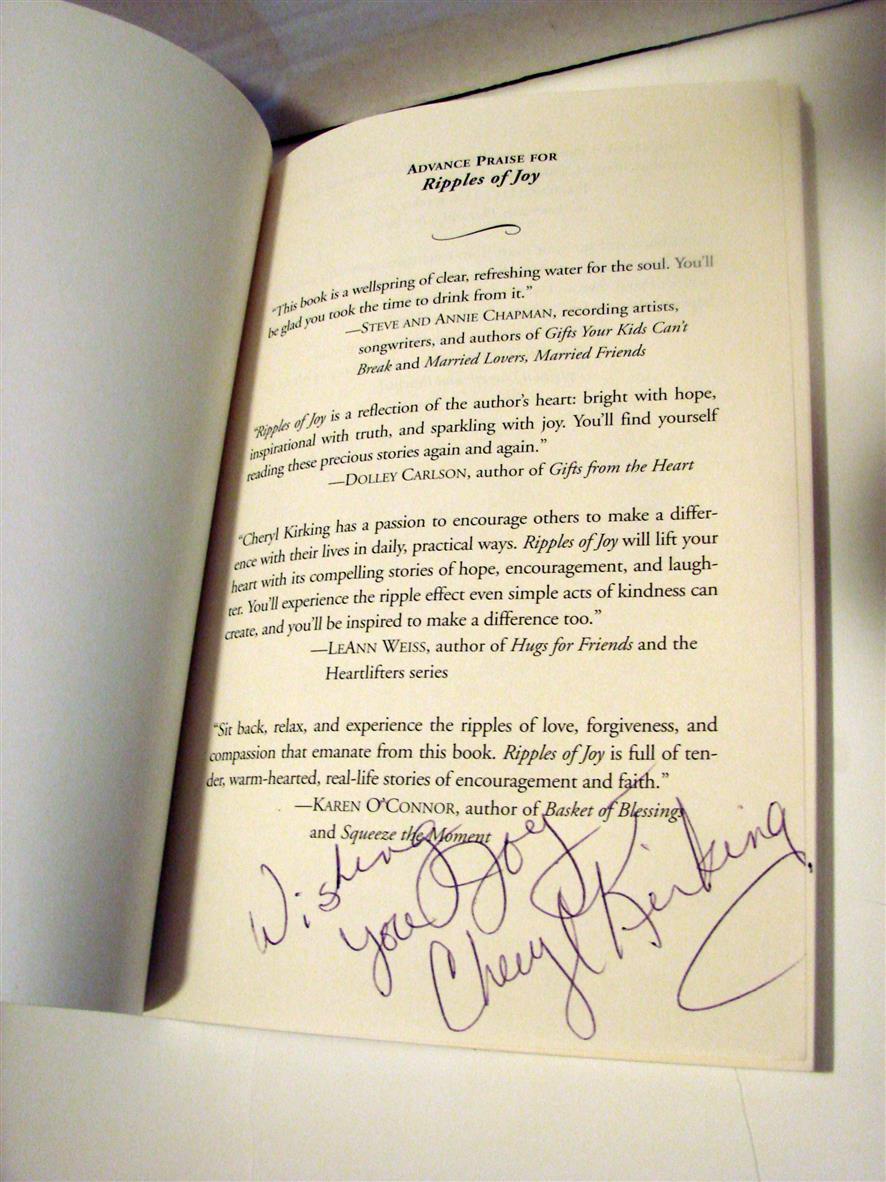 ADVANCE PRAISE FOR
Ripples of Joy
"This book is a wellspring of clear, refreshing water for the soul. You'll
be glad you took the time to drink from it."
—STEVE AND ANNIE CHAPMAN, recording artists,
songwriters, and authors of Gifts Your Kids Can't
Break and Married Lovers, Married Friends
"Ripples of Joy is a reflection of the author's heart: bright with hope,
inspirational with truth, and sparkling with joy. You'll find yourself
reading these precious stories again and again."
—DOLLEY CARLSON, author of Gifts from the Heart
"Cheryl Kirking has a passion to encourage others to make a differ-
ence with their lives in daily, practical ways. Ripples of Joy will lift your
heart with its compelling stories of hope, encouragement, and laugh-
ter. You'll experience the ripple effect even simple acts of kindness can
create, and you'll be inspired to make a difference too."
—LEANN WEISS, author of Hugs for Friends and the
Heartlifters series
"Sit back, relax, and experience the ripples of love, forgiveness, and
compassion that emanate from this book. Ripples of Joy is full of ten-
der, warm-hearted, real-life stories of encouragement and faith."
—KAREN O'CONNOR, author of Basket of Blessings
and Squeeze the Moment
Wishing
you Joy
Cheryl Kirking